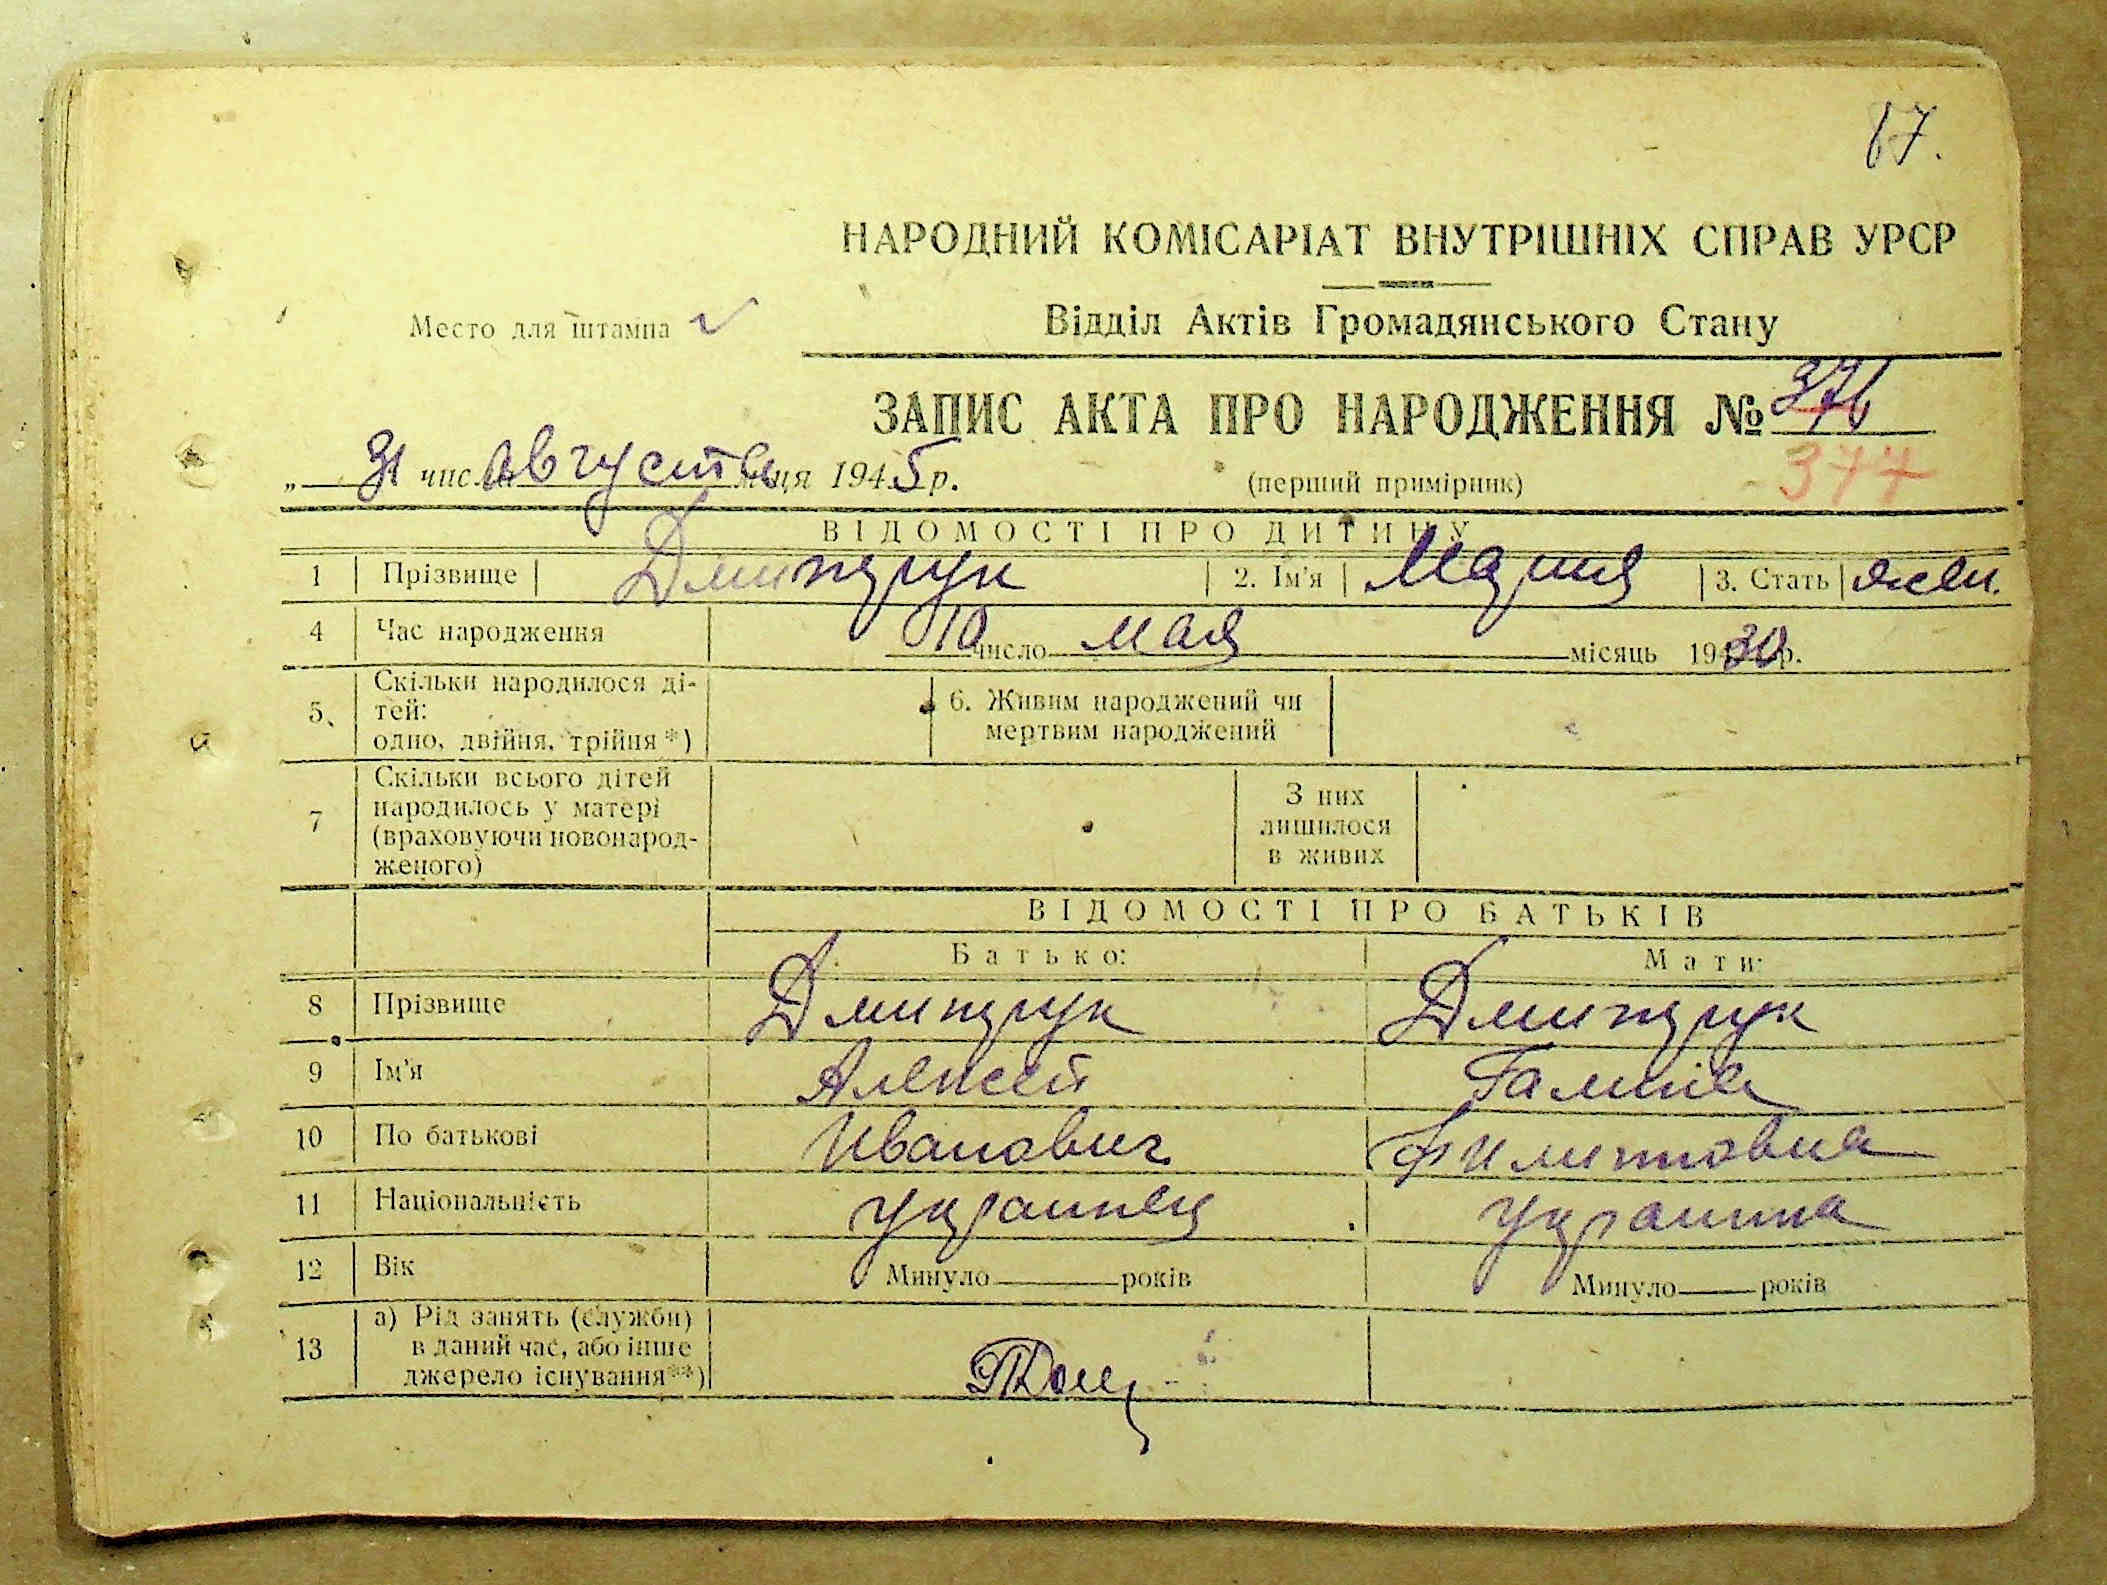 87.
НАРОДНИЙ КОМІСАРІАТ ВНУТРІШНІХ СПРАВ УРСР
Место для штампа
Відділ Актів Громадянського Стану
ЗАПИС АКТА ПРО НАРОДЖЕННЯ № 376
„ 31 числа августа м-ця 1945 р.
(перший примірник) 377
ВІДОМОСТІ ПРО ДИТИНУ
1 Прізвище Дмитрук 2. Ім'я Мария 3. Стать жен.
4 Час народження 10 число мая місяць 1930 р.
5 Скільки народилося ді-
тей:
одно, двійня, трійня *)
6. Живим народжений чи
мертвим народжений
7 Скільки всього дітей
народилось у матері
(враховуючи новонарод-
женого)
З них
лишилося
в живих
ВІДОМОСТІ ПРО БАТЬКІВ
Батько: Мати:
8 Прізвище Дмитрук Дмитрук
9 Ім'я Алексей Галина
10 По батькові Иванович Филиповна
11 Національність украинец украинка
12 Вік Минуло років Минуло років
13 а) Рід занять (служби)
в даний час, або інше
джерело існування**)